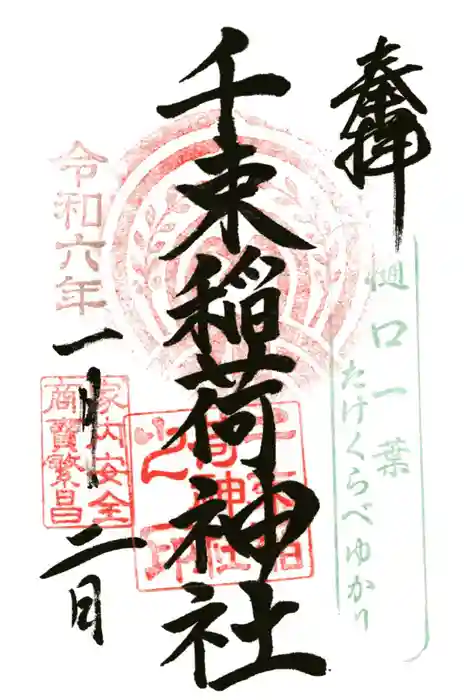 奉拝
樋口一葉
たけくらべゆかり
千束稲荷神社
千束稲荷神社之印
令和六年
一月二日
家内安全
商買繁昌